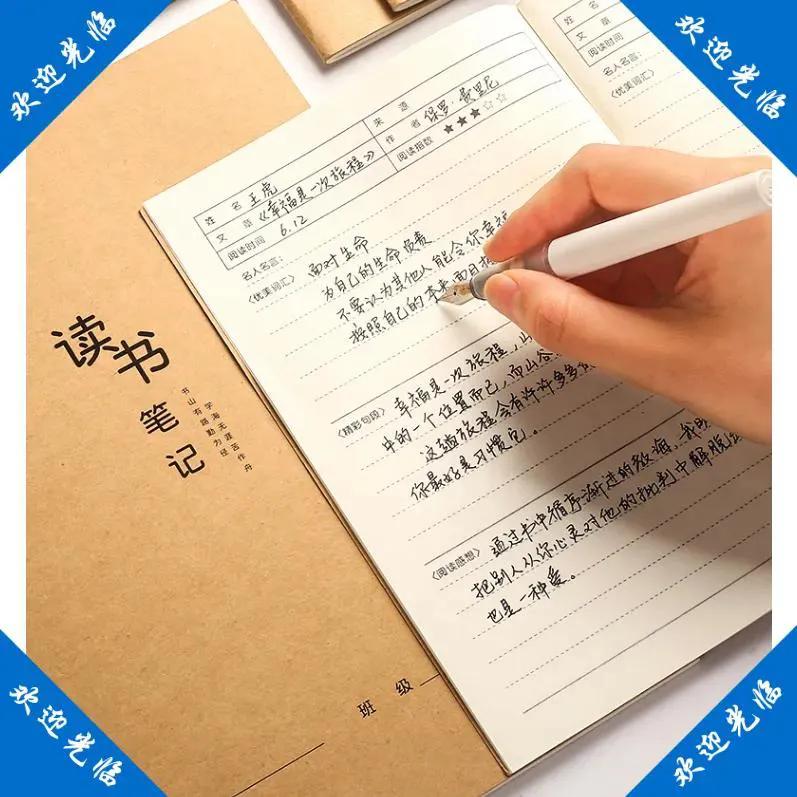 欢迎光临
欢迎光临
姓 名 王虎
来 源
文 章 《幸福是一次旅程》
作 者 保罗·曼里尼
阅读时间 6.12
阅读指数 ★★★☆☆
名人名言:
〈优美词汇〉 面对生命
为自己的生命负责
不要认为其他人能令你幸福
按照自己的本来面目
〈精彩句段〉 幸福是一次旅程,山
中的一个位置而已,而山谷
这趟旅程会有许许多多
你最好是习惯它。
〈阅读感想〉 通过书中循序渐进的教诲,我
把别人从你心灵对他的批判中解脱
也是一种爱。
姓
文 章
阅读时间
名人名言:
〈优美词汇〉
读书
笔记
书山有路勤为径
学海无涯苦作舟
班 级
欢迎光临
欢迎光临